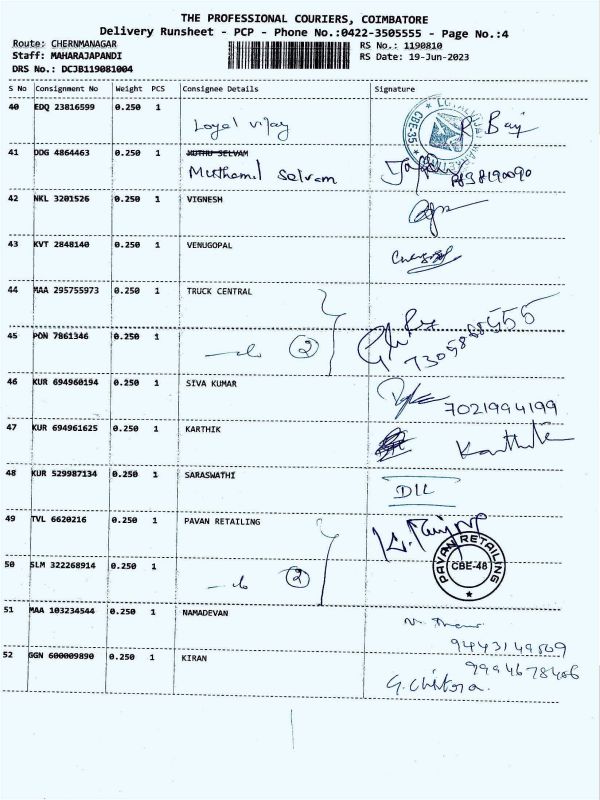 THE PROFESSIONAL COURIERS, COIMBATORE
Delivery Runsheet - PCP - Phone No.:0422-3505555 - Page No.:4
Route: CHERNMANAGAR
RS No.: 1190810
Staff: MAHARAJAPANDI
RS Date: 19-Jun-2023
DRS No.: DCJB119081004
S No Consignment No Weight PCS Consignee Details Signature
40 EDQ 23816599 0.250 1
Loyal vijay
R Bay
CBE-35
41 DDG 4864463 0.250 1 MUTHU SELVAM
Muthamil selvam
42 NKL 3201526 0.250 1 VIGNESH
43 KVT 2848140 0.250 1 VENUGOPAL
44 MAA 295755973 0.250 1 TRUCK CENTRAL
45 PON 7861346 0.250 1
2
46 KUR 694960194 0.250 1 SIVA KUMAR
7021994199
47 KUR 694961625 0.250 1 KARTHIK
48 KUR 529987134 0.250 1 SARASWATHI
49 TVL 6620216 0.250 1 PAVAN RETAILING
PAVAN RETAILING
CBE-48
50 SLM 322268914 0.250 1
2
51 MAA 103234544 0.250 1 NAMADEVAN
52 GGN 600009890 0.250 1 KIRAN
G. Chitra.